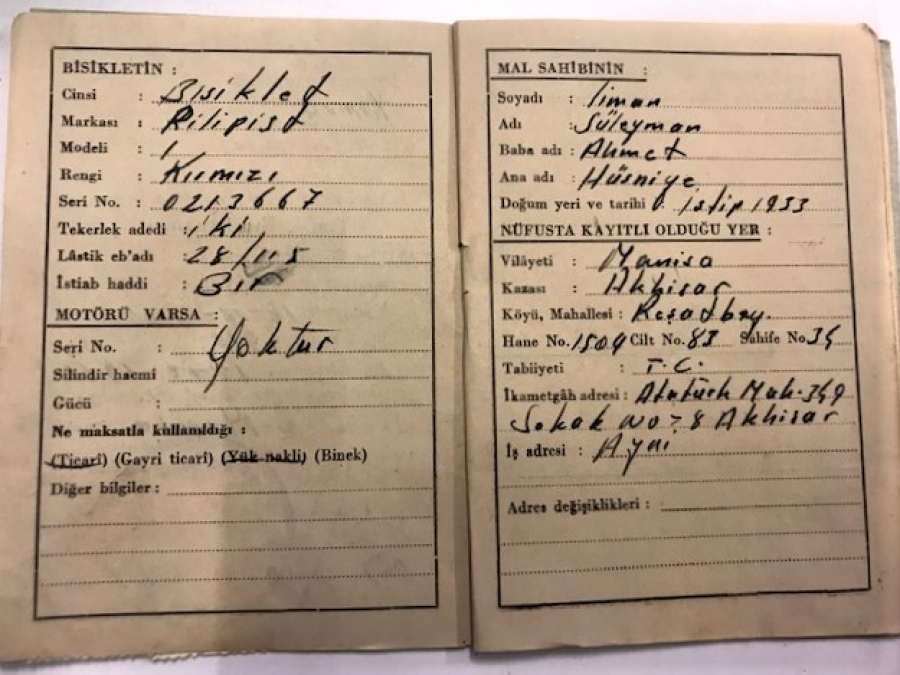 BİSİKLETİN :
Cinsi : Bisiklet
Markası : Rilipist
Modeli : 1
Rengi : Kırmızı
Seri No. : 0213667
Tekerlek adedi : iki
Lâstik eb'adı : 28/115
İstiab haddi : Bir
MOTÖRÜ VARSA :
Seri No. : Yoktur
Silindir hacmi
Gücü :
Ne maksatla kullanıldığı :
(Ticarî) (Gayri ticarî) (Yük nakli) (Binek)
Diğer bilgiler :
MAL SAHİBİNİN :
Soyadı : Liman
Adı : Süleyman
Baba adı : Ahmet
Ana adı : Hüsniye
Doğum yeri ve tarihi : istip 1933
NÜFUSTA KAYITLI OLDUĞU YER :
Vilâyeti : Manisa
Kazası : Akhisar
Köyü, Mahallesi : Reşadbey.
Hane No. 1504 Cilt No. 83 Sahife No 34
Tabiiyeti : T.C.
İkametgâh adresi : Atatürk Mah. 349
Sokak No: 8 Akhisar
İş adresi : Aynı
Adres değişiklikleri :